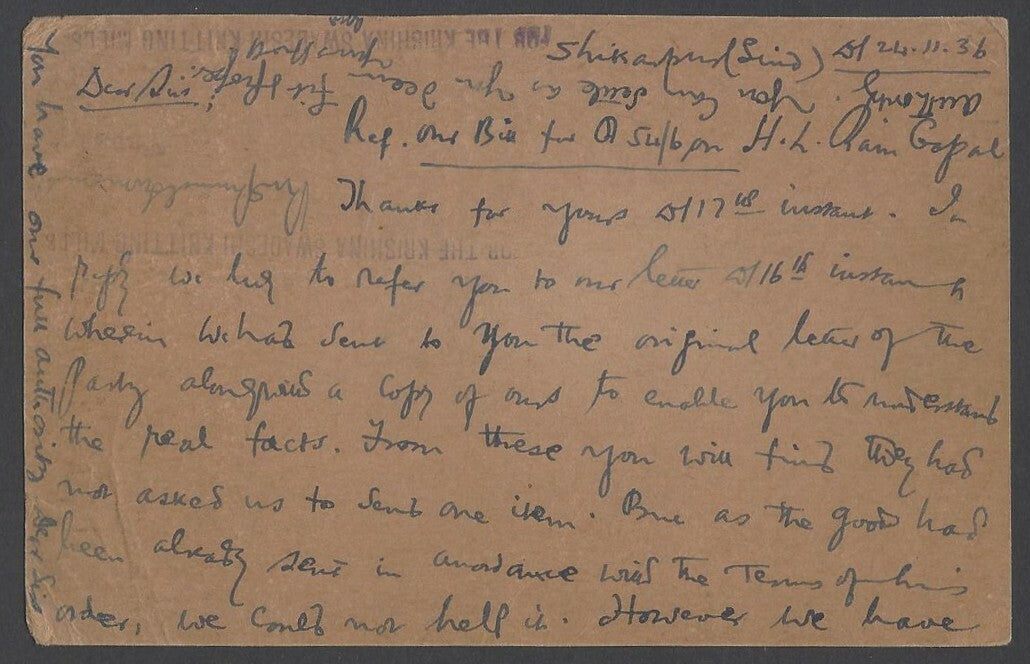 Shikarpur (Sind) D/ 24.11.36
Dear Sir,
Ref. our Bill for R 54/6 on H. L. Ram Gopal
Thanks for yours D/17th instant. In
reply we beg to refer you to our letter D/16th instant
wherein we had sent to you the original letter of the
Party alongwith a copy of ours to enable you to understand
the real facts. From these you will find they had
not asked us to send one item. But as the goods had
been already sent in accordance with the Terms of his
order, we could not help it. However we have
You have our full authority Dear Sir
authority. You can settle as you deem fit & proper.
FOR THE KRISHNA SWADESHI KNITTING MILLS
FOR THE KRISHNA SWADESHI KNITTING MILLS